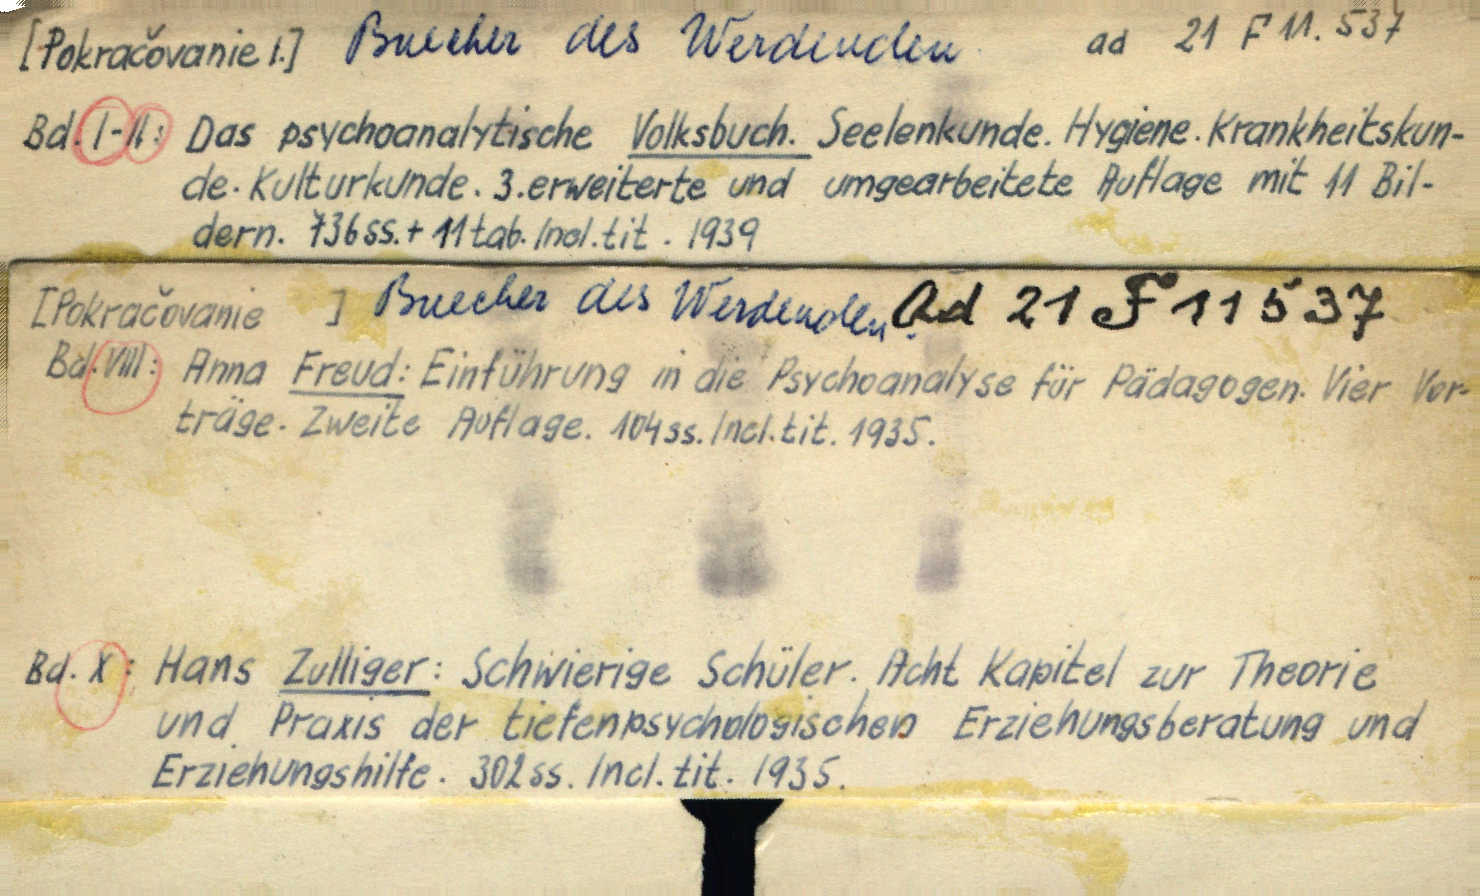 [Pokračovanie 1.] Buecher des Werdenden. ad 21 F 11.537
Bd. I-II: Das psychoanalytische Volksbuch. Seelenkunde. Hygiene. Krankheitskun-
de. Kulturkunde. 3. erweiterte und umgearbeitete Auflage mit 11 Bil-
dern. 736 ss. + 11 tab. Incl. tit. 1939
[Pokračovanie ] Buecher des Werdenden. Ad 21 F 11537
Bd. VIII: Anna Freud: Einführung in die Psychoanalyse für Pädagogen. Vier Vor-
träge. Zweite Auflage. 104 ss. Incl. tit. 1935.
Bd. X: Hans Zulliger: Schwierige Schüler. Acht Kapitel zur Theorie
und Praxis der tiefenpsychologischen Erziehungsberatung und
Erziehungshilfe. 302 ss. Incl. tit. 1935.